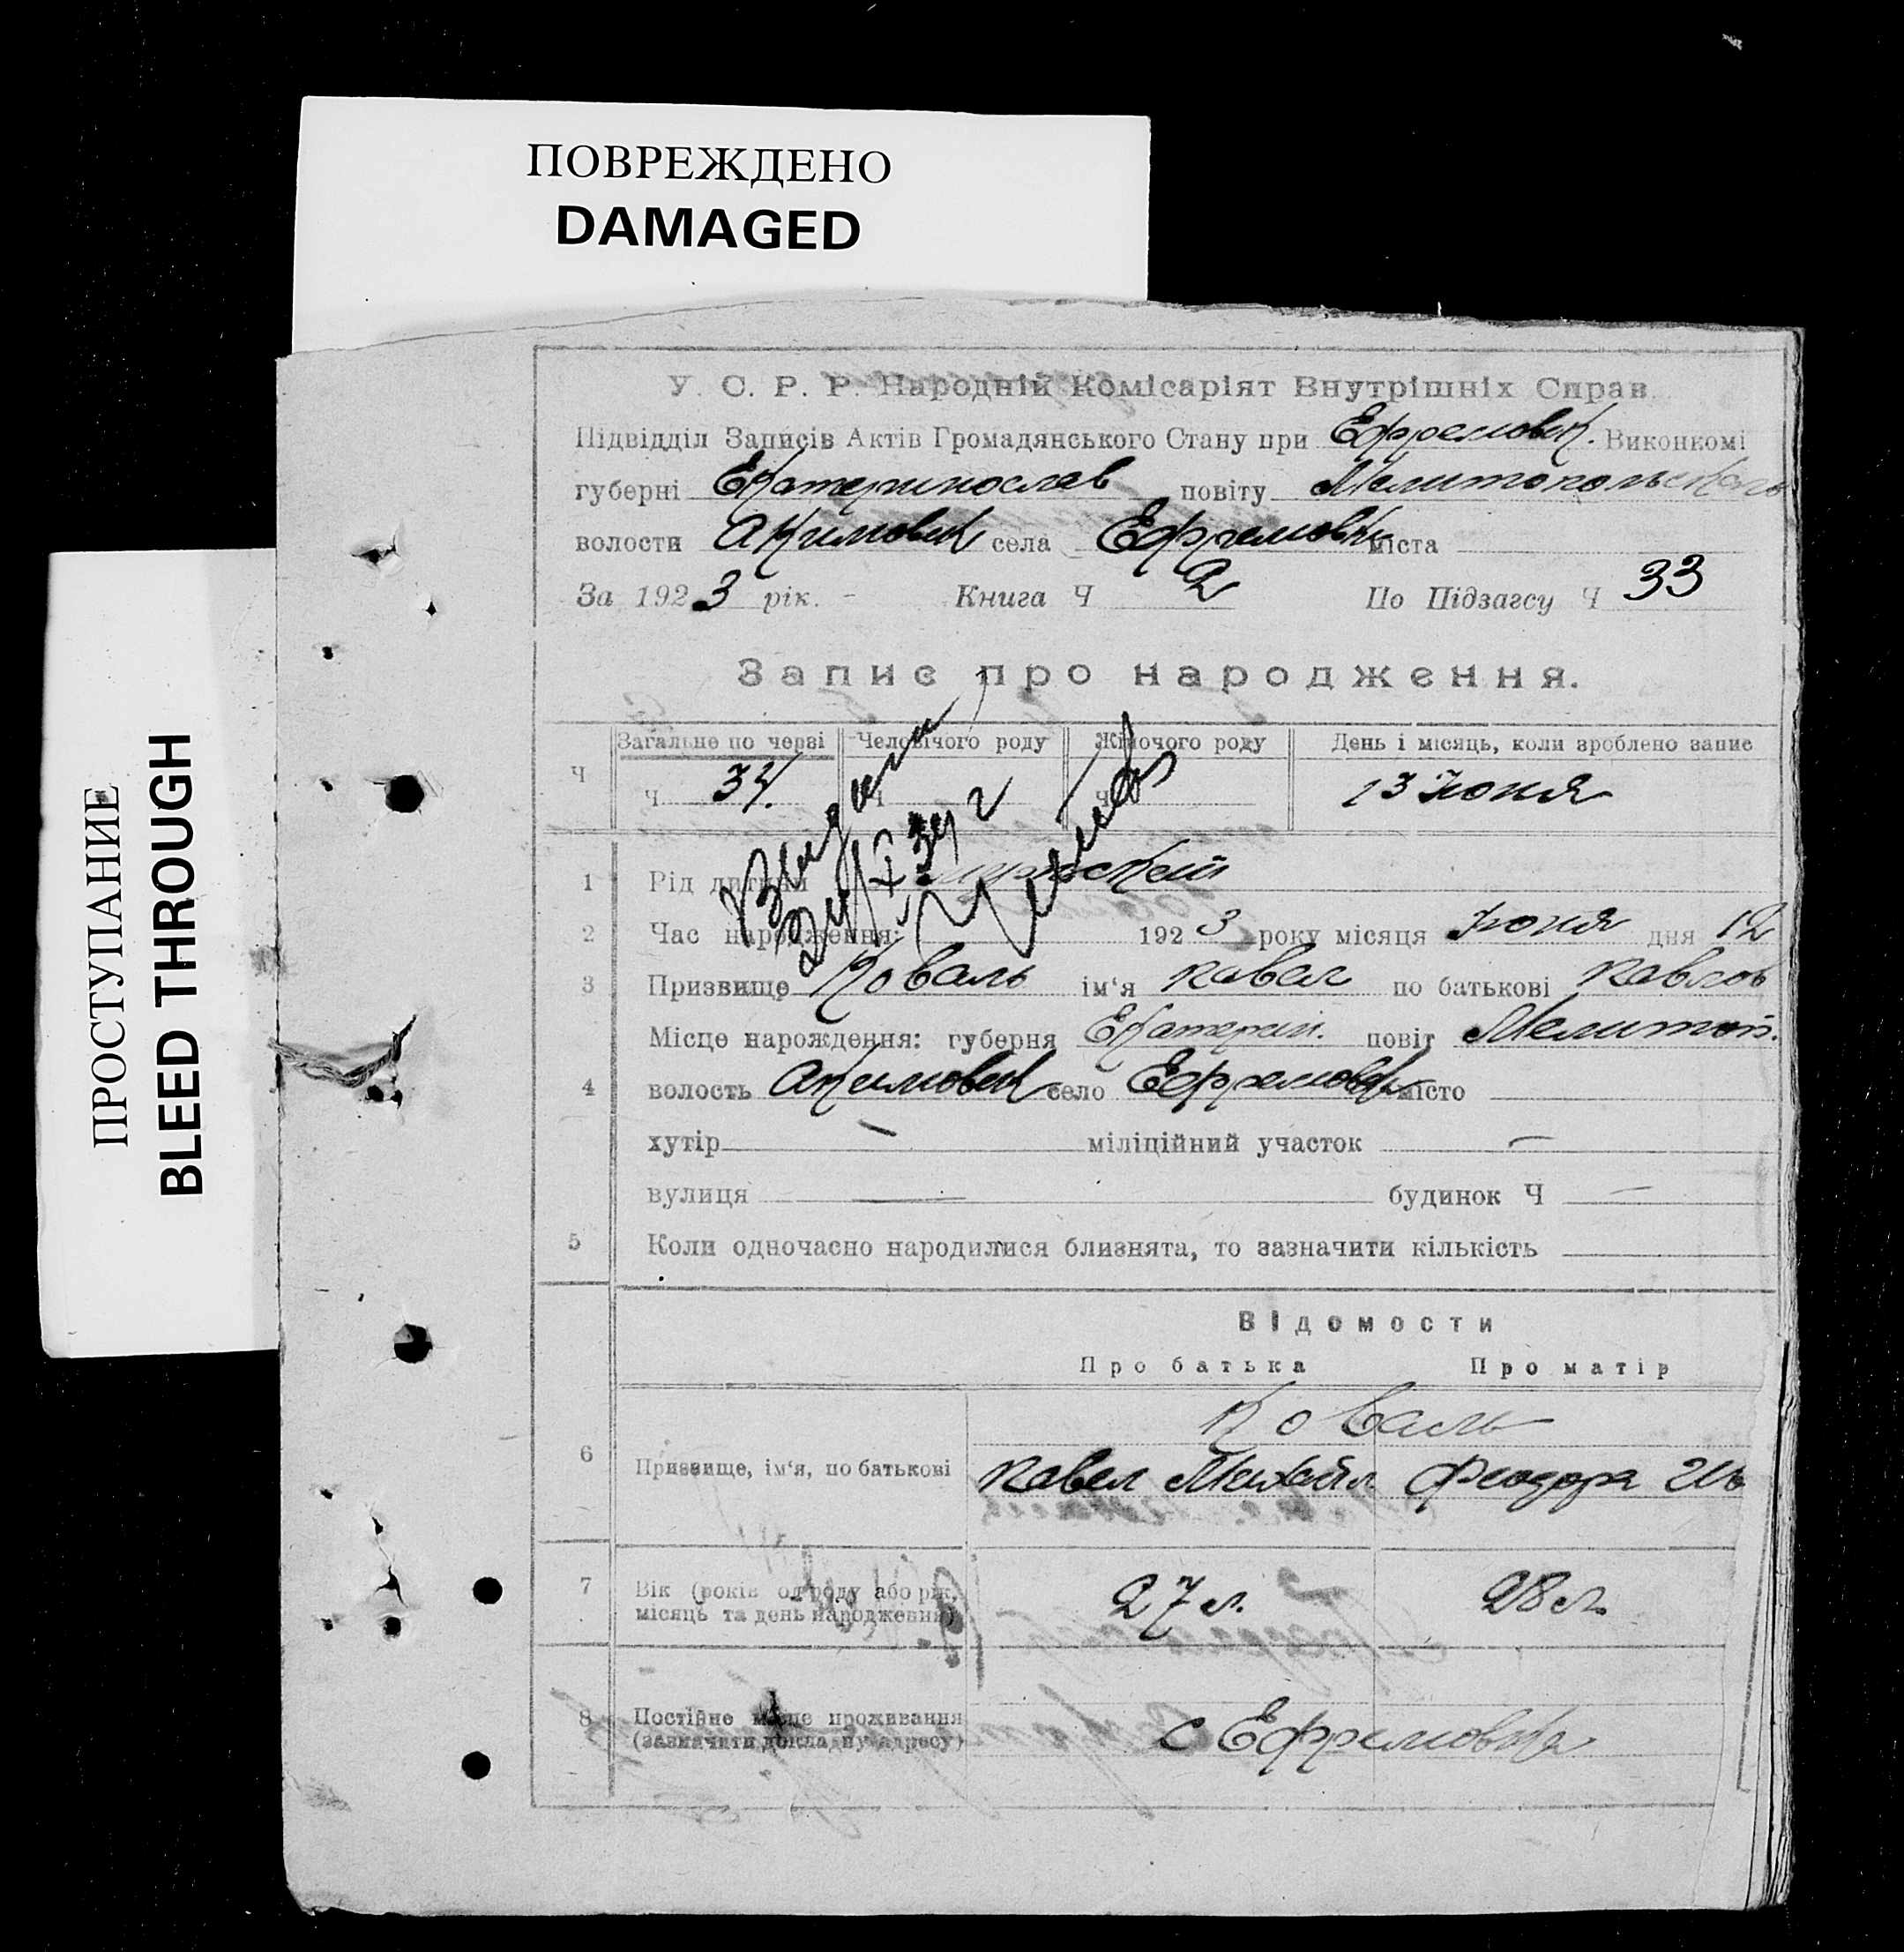 ПОВРЕЖДЕНО
DAMAGED
ПРОСТУПАНИЕ
BLEED THROUGH
У. С. Р. Р. Народній Комісаріят Внутрішніх Справ.
Підвідділ Записів Актів Громадянського Стану при Ефремовск. Виконкомі
губерні Екатеринослав повіту Мелитопольского
волости Акимовск села Ефремовки міста
За 1923 рік. - Книга Ч 2 По Підзагсу Ч 33
Запис про народження.
Загальне по черзі Чоловічого роду Жіночого роду День і місяць, коли зроблено запис
Ч Ч 34. Ч Ч 13 Июня
1 Рід дитини мужской
2 Час народження: 1923 року місяця Июня дня 12
3 Призвище Коваль ім'я Павел по батькові Павлов
Місце нарождення: губерня Екатерин. повіт Мелитоп.
4 волость Акимовск село Ефремовк місто
хутір — міліційний участок —
вулиця — будинок Ч —
5 Коли одночасно народилися близнята, то зазначити кількість
Відомости
Про батька Про матір
Коваль
6 Призвище, ім'я, по батькові Павел Михайл Феодора Ив
7 Вік (років од роду або рік, 27 л. 28 л.
місяць та день народження)
8 Постійне місце проживання с Ефремовка
(зазначити докладну адресу)